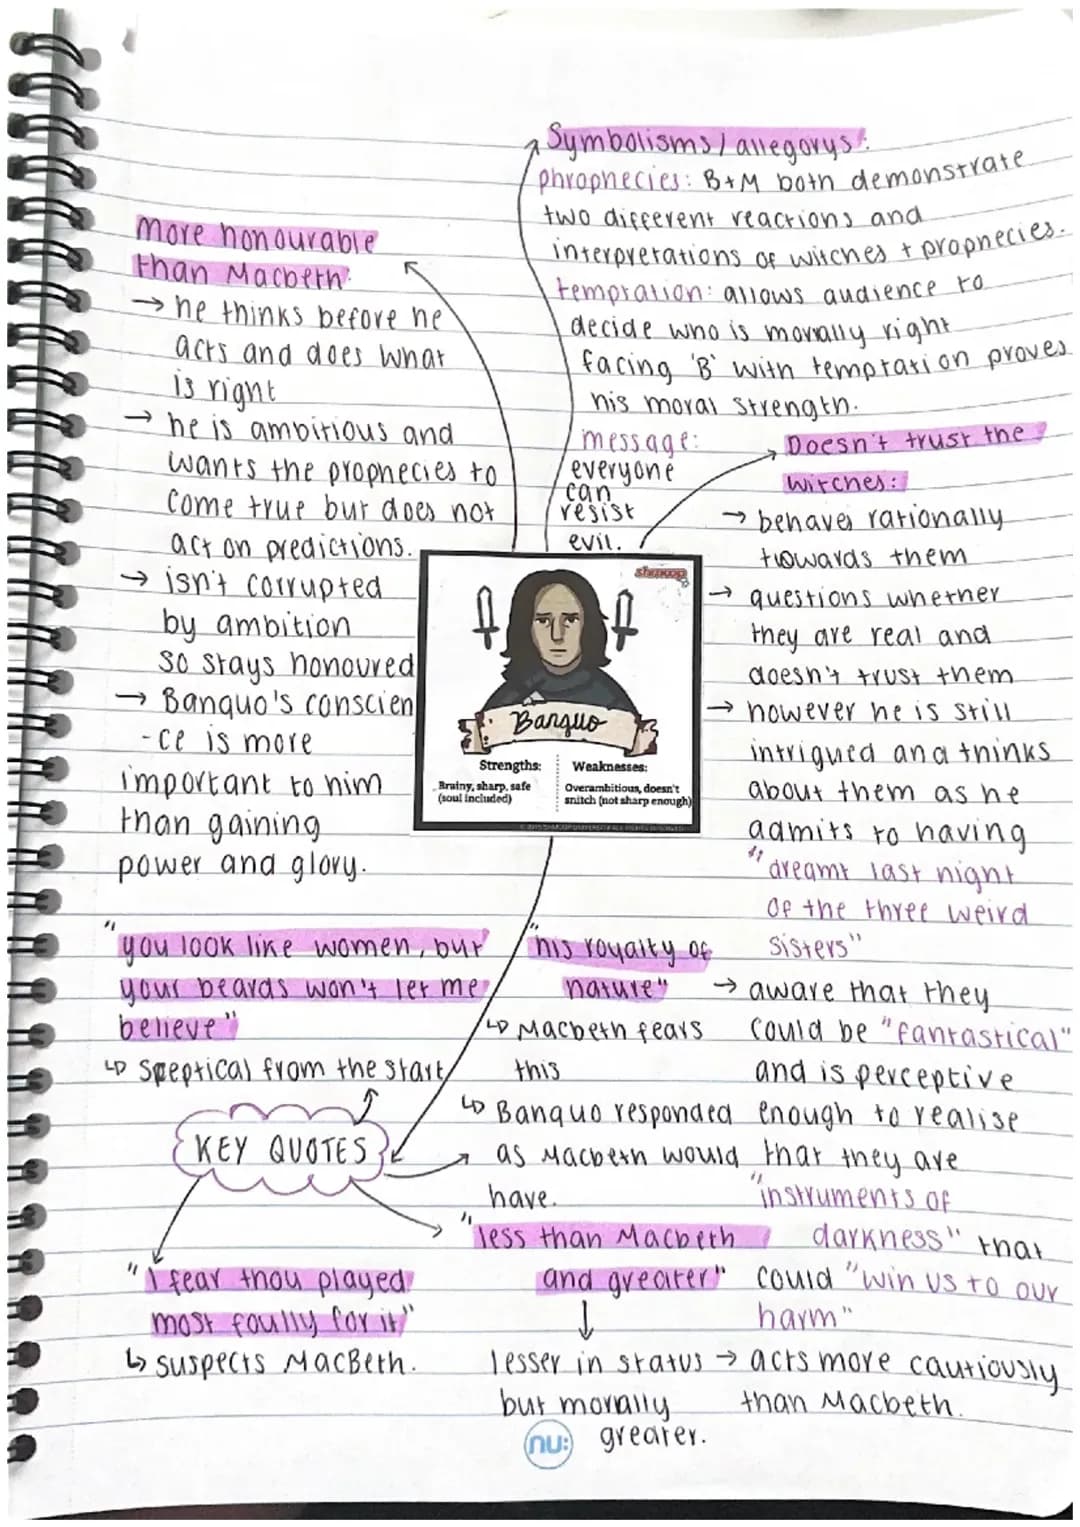 Symbolisms / allegorys:
phrophecies: B+M both demonstrate
two different reactions and
interpretations of witches + prophecies.
temptation: allows audience to
decide who is morally right
facing 'B' with temptation proves
his moral strength.
message:
everyone
can
resist
evil.
More honourable
than Macbeth:
→ he thinks before he
acts and does what
is right
→ he is ambitious and
wants the prophecies to
come true but does not
act on predictions.
→ isn't corrupted
by ambition
so stays honoured
→ Banquo's conscien
-ce is more
important to him
than gaining
power and glory.
Doesn't trust the
witches:
→ behaves rationally
towards them
→ questions whether
they are real and
doesn't trust them
→ however he is still
intrigued and thinks
about them as he
admits to having
"dreamt last night
of the three weird
sisters"
→ aware that they
could be "fantastical"
and is perceptive
enough to realise
that they are
"instruments of
darkness" that
could "win us to our
harm"
→ acts more cautiously
than Macbeth.
shmoop
Banquo
Strengths:
Brainy, sharp, safe
(soul included)
Weaknesses:
Overambitious, doesn't
snitch (not sharp enough)
"you look like women, but
your beards won't let me
believe"
↳ Sceptical from the start
KEY QUOTES
"his royalty of
nature"
↳ Macbeth fears
this
↳ Banquo responded
as Macbeth would
have.
"I fear thou played
most foully for it"
↳ suspects MacBeth.
"less than Macbeth
and greater"
lesser in status
but morally
greater.
nu: